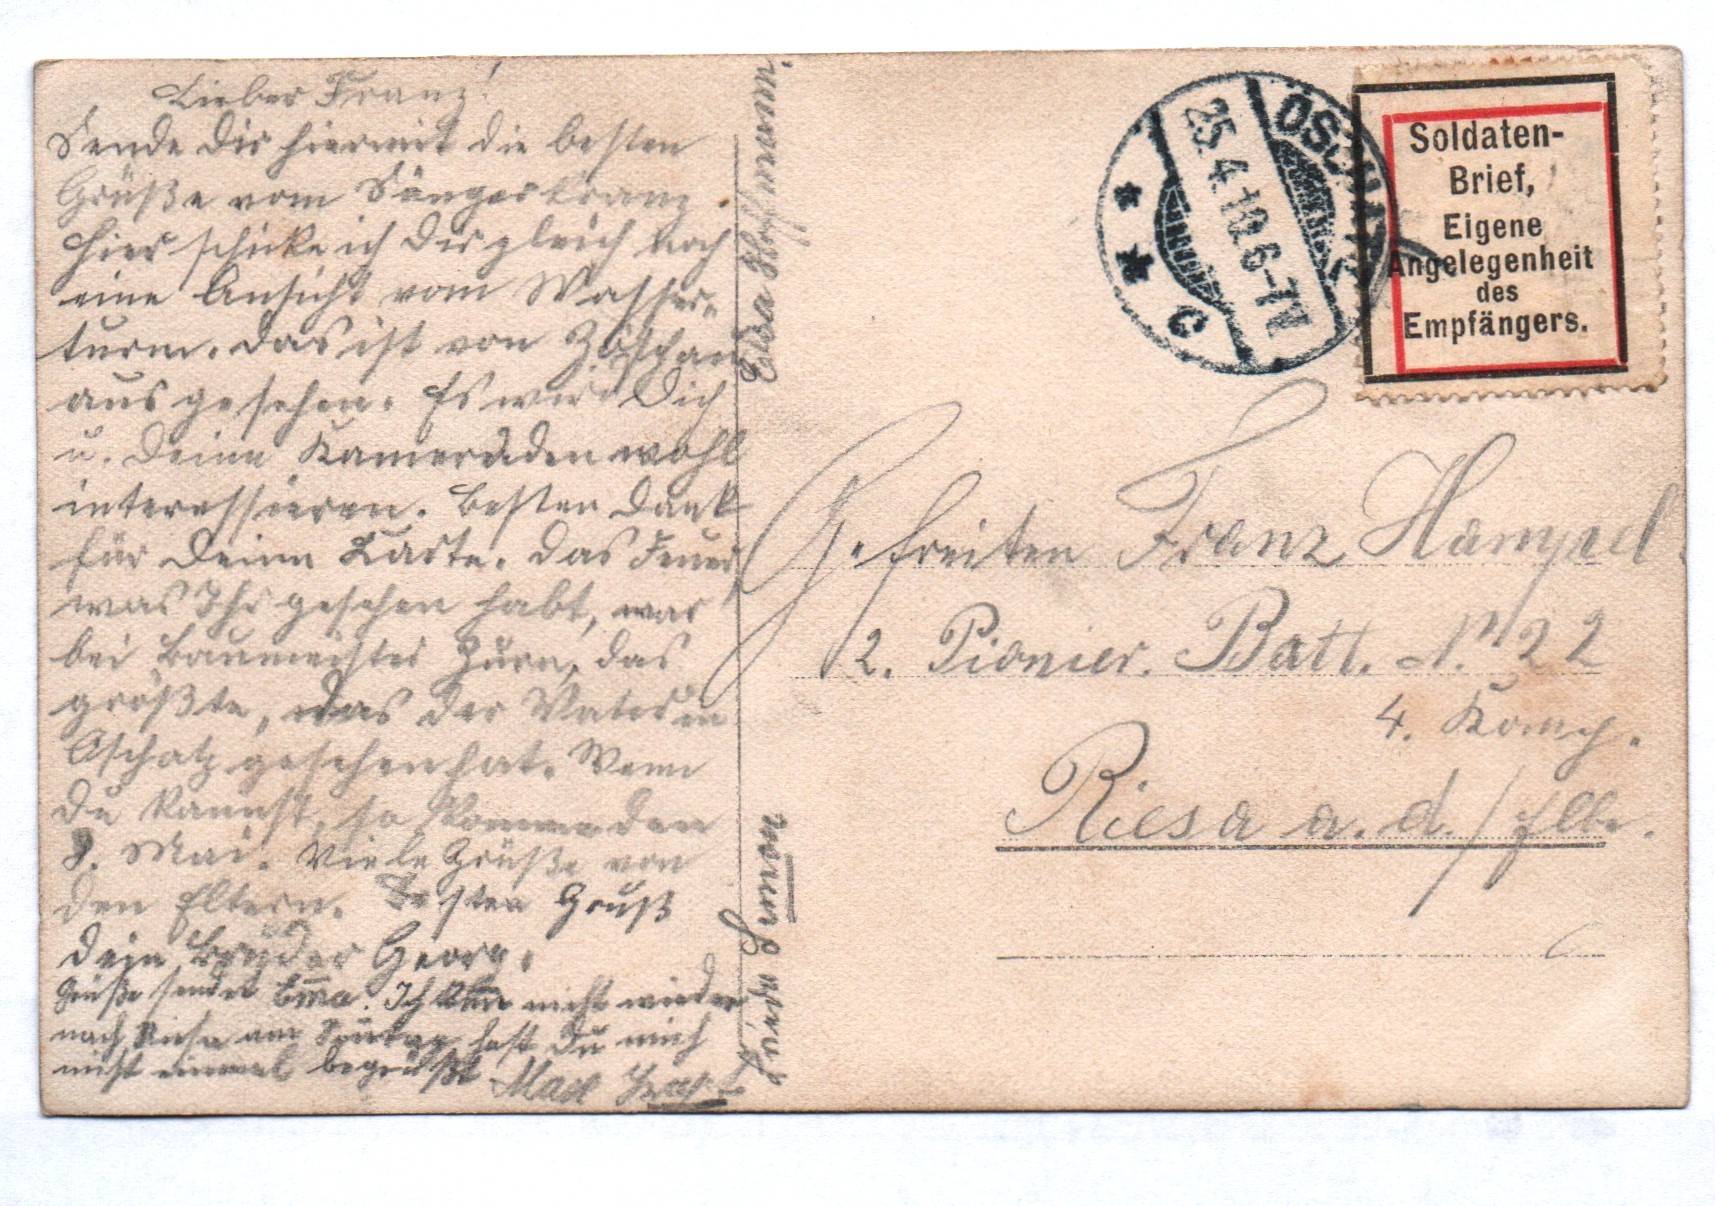 Lieber Franz!
Sende Dir hiermit die besten
Grüße vom Sängerkranz.
Hier schicke ich Dir gleich noch
eine Ansicht vom Wasser-
turm. Das ist von Zöschau
aus gesehen. Es wird Dich
u. Deine Kameraden wohl
interessieren. Besten Dank
für Deine Karte. Das Feuer,
was Ihr gesehen habt, war
bei Baumeister Zürn, das
größte, was der Vater in
Oschatz gesehen hat. Wenn
Du kannst, so komme den
8. Mai. Viele Grüße von
den Eltern. Besten Gruß
Dein Bruder Georg.
Grüße sendet Emma. Ich nicht wieder
nach Riesa am Sonntag hast Du mich
nicht einmal begrüßt
Elsa Hoffmann.
Frieda Simon
OSCHATZ
25.4.10.6-7N
* * C
Soldaten-
Brief,
Eigene
Angelegenheit
des
Empfängers.
Gefreiten Franz Hampel.
2. Pionier. Batl. No. 22
4. Komp.
Riesa a. d. / Elbe.